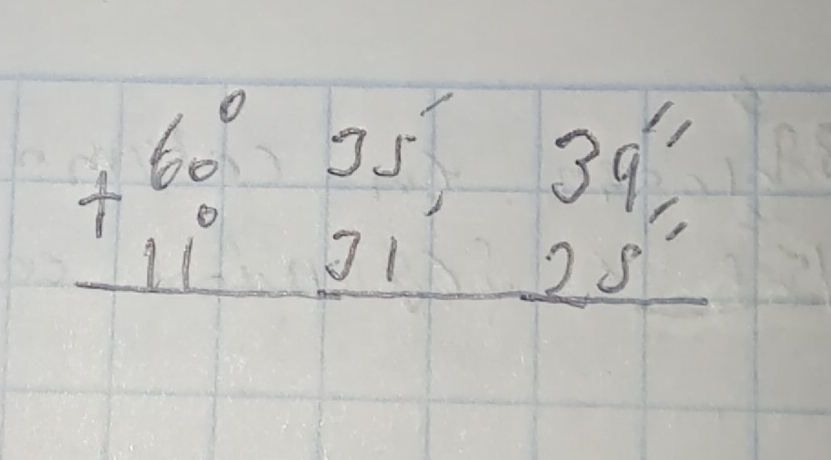 60° 35′ 39″
+
11° 31′ 25″